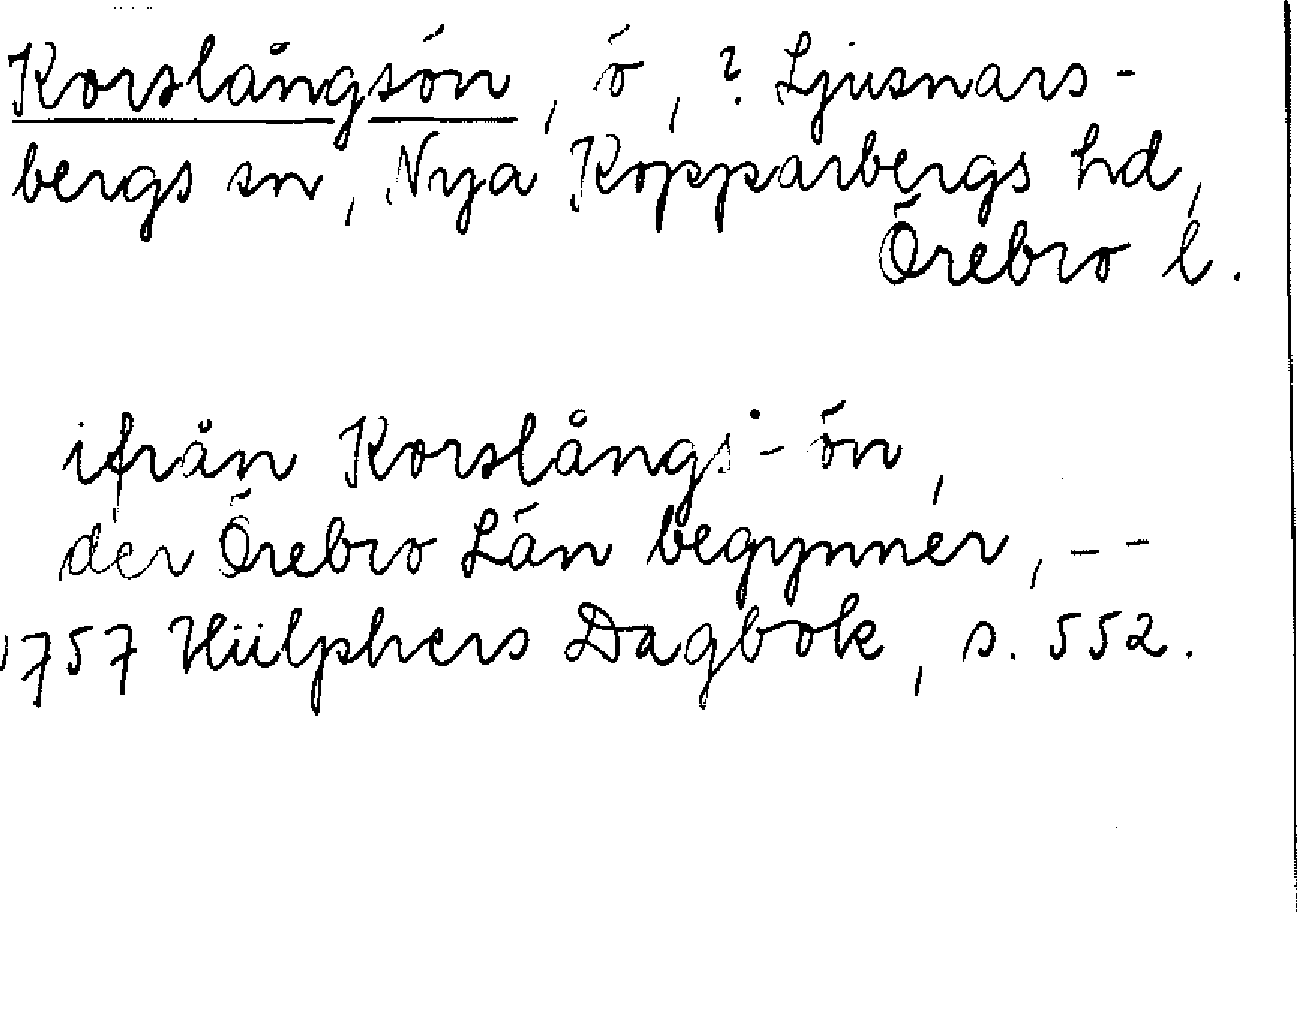 Korslångsön, ö, ? Ljusnars-
bergs sn, Nya Kopparbergs hd,
Örebro l.
ifrån Korslångs-ön,
der Örebro Län begynner, - -
1757 Hülphers Dagbok, s. 552.